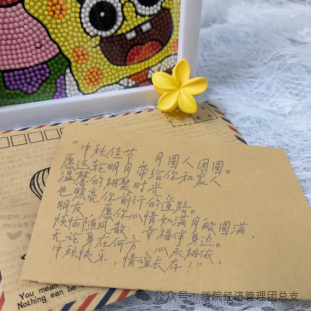 "中秋佳节 月圆人团圆。
愿这轮明月带给你和家人
温馨的相聚时光，
也照亮你前行的道路。
朋友，愿你心情如满月般圆满，
烦恼随风散，幸福伴身边。
无论身在何方，心永相依
中秋快乐，情谊长存！"
You mean
Nothing can be
公众号：学院经济管理团总支